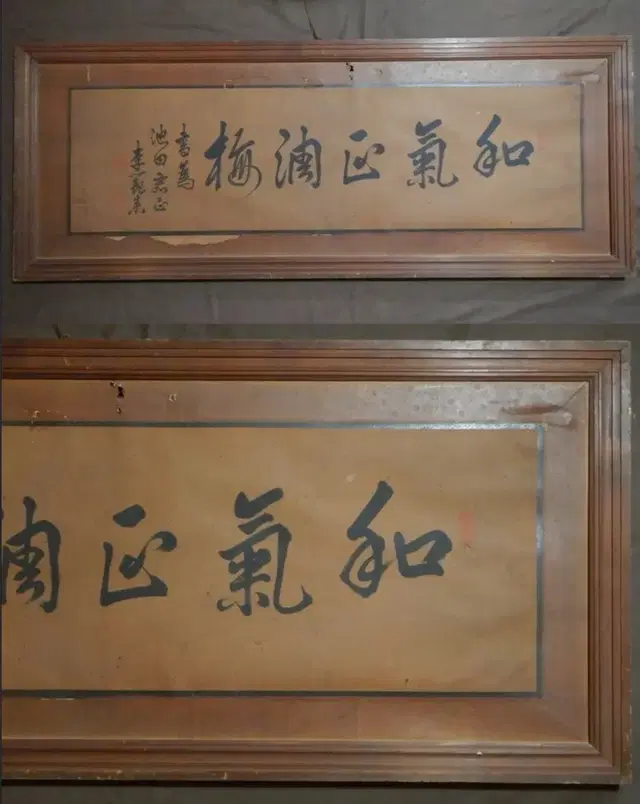 和氣正調梅
書為
池田君正
李
和氣正調